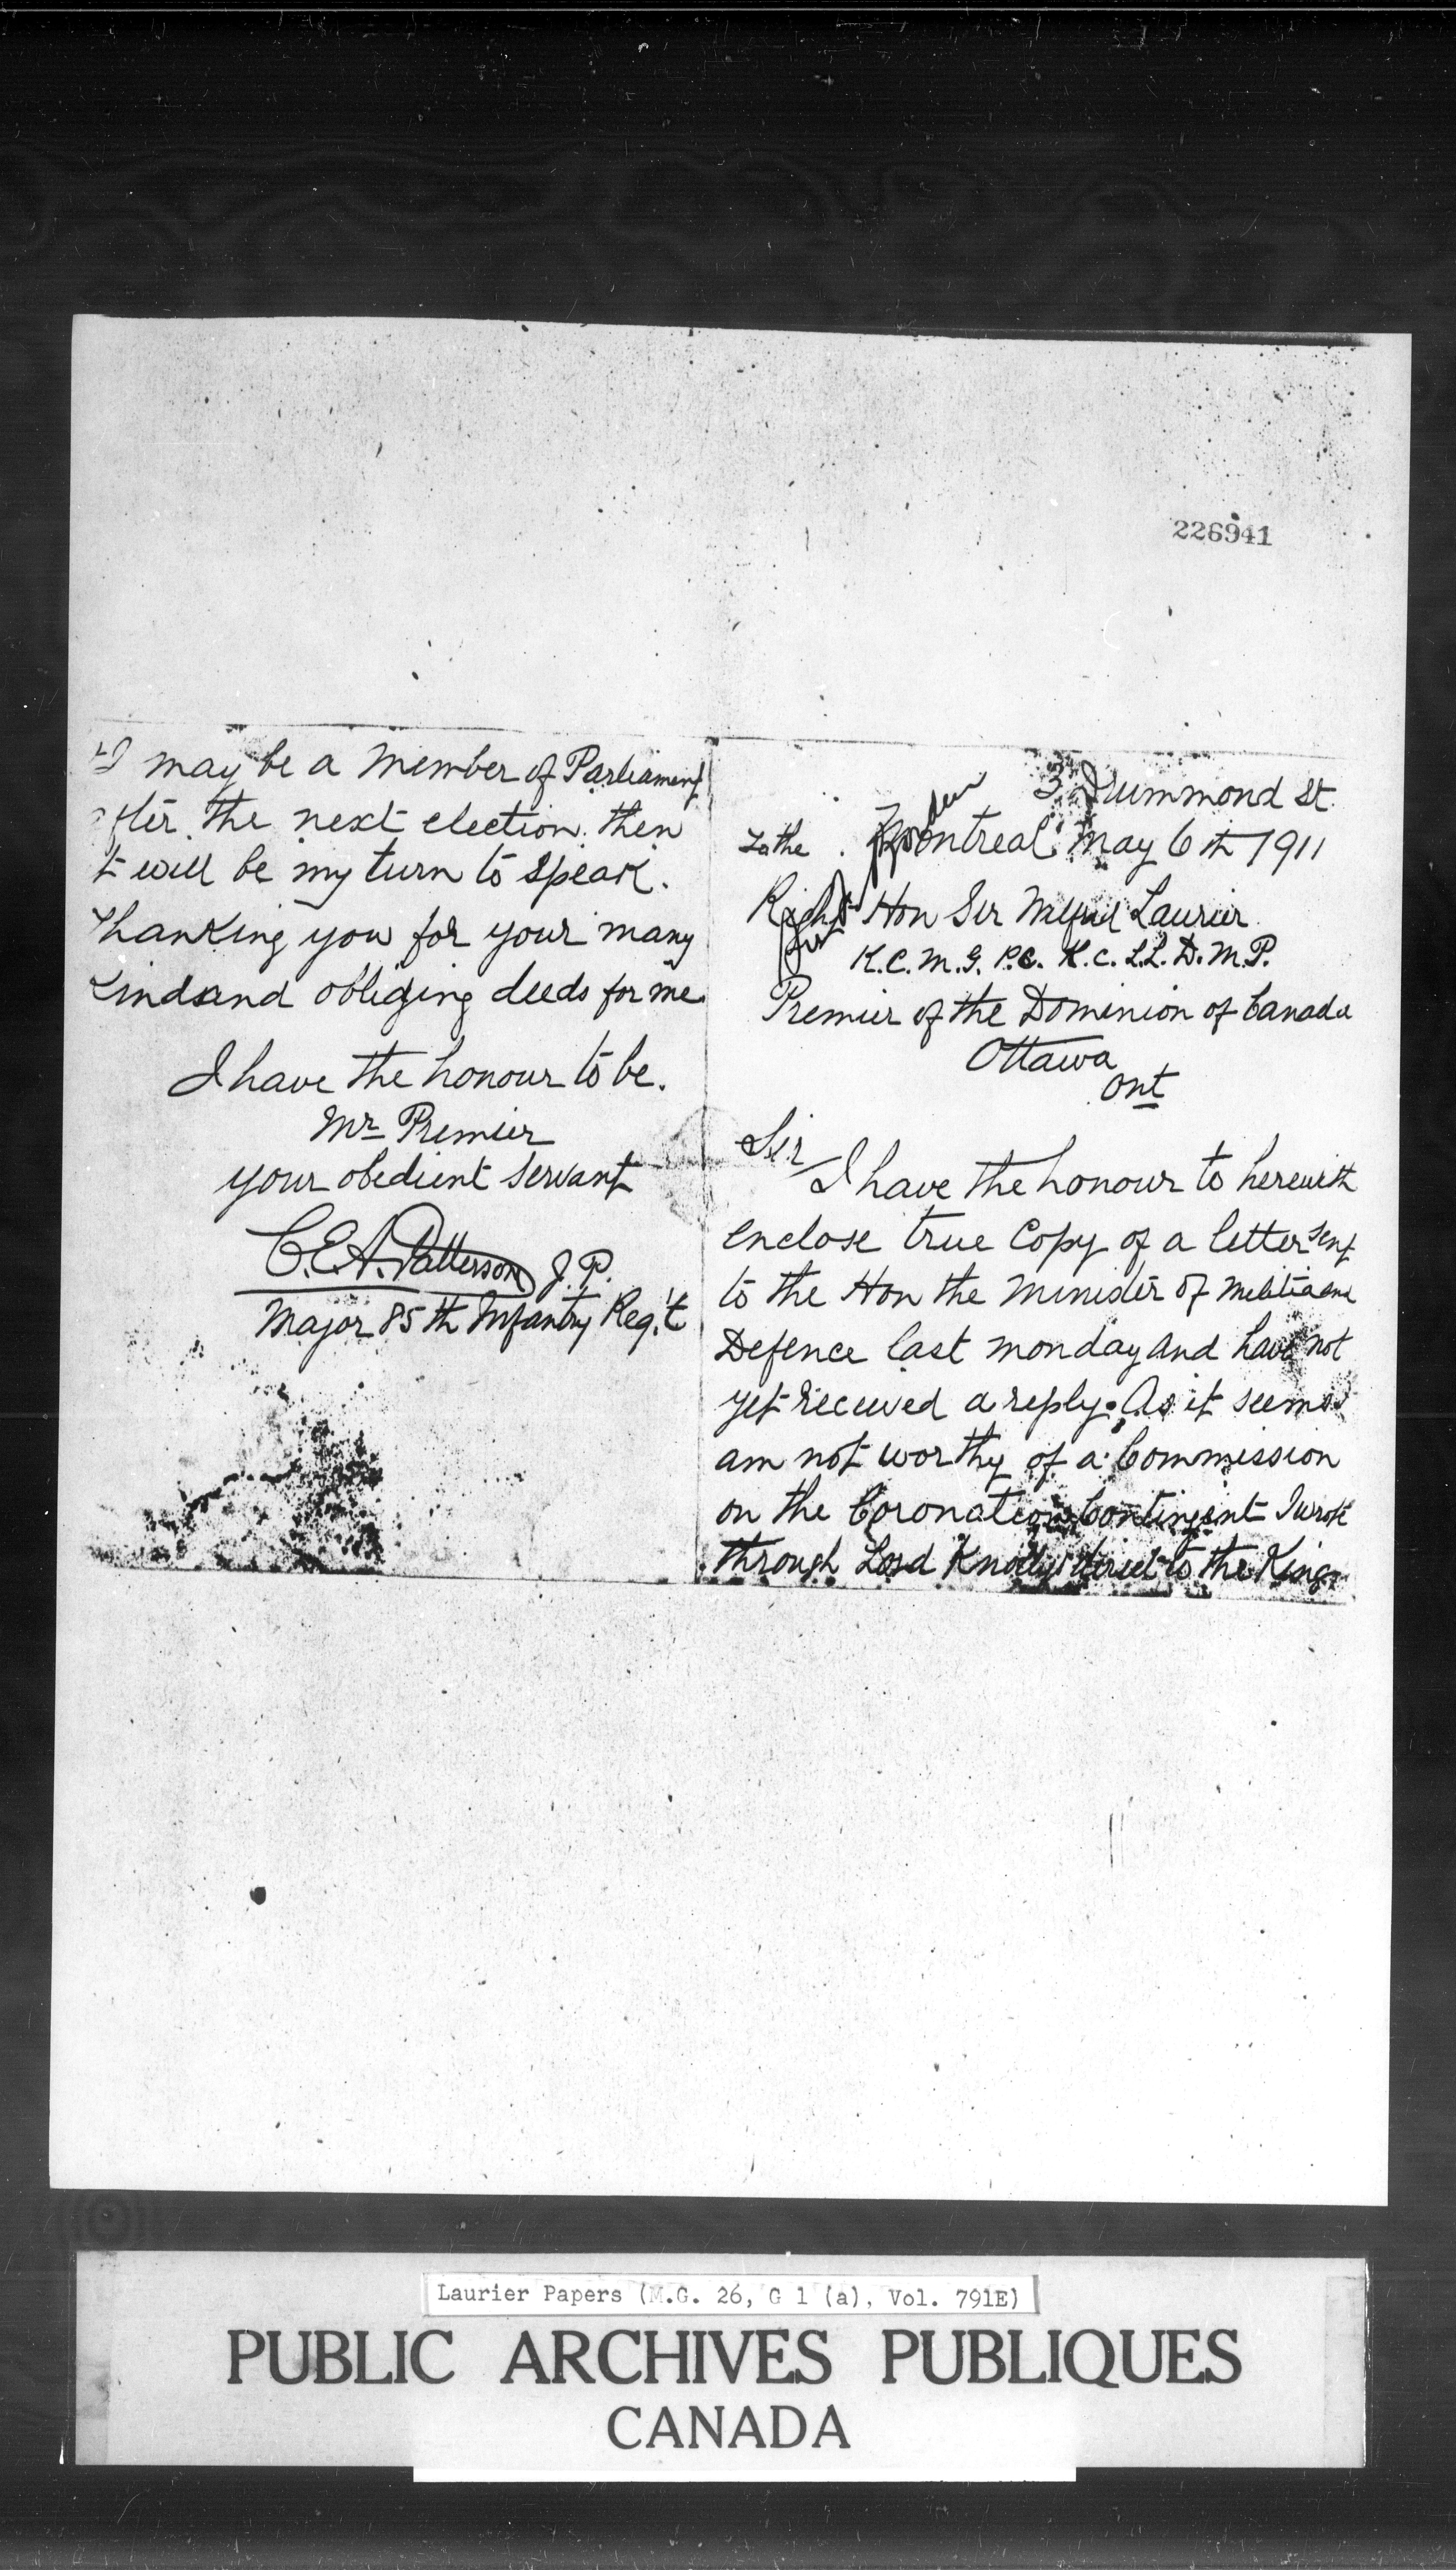 226941
I may be a Member of Parliament
the next election then
t will be my turn to speak.
Thanking you for your many
kindsand obliging deeds for me.
I have the honour to be.
Mr Premier
your obedient servant
C.E.A. Patterson J.P.
Major 85th Infantry Reg't
3 Drummond St.
To the Montreal May 6th 1911
Right Hon Sir Wilfrid Laurier
K.C.M.G. P.C. K.C. L.L.D. M.P.
Premier of the Dominion of Canada
Ottawa
Ont
Sir
I have the honour to herewith
enclose true Copy of a letter sent
to the Hon the Minister of Militia and
Defence last monday and have not
yet received a reply. As it seems
am not worthy of a Commission
on the Coronation Contingent I wrote
through Lord Knollys direct to the King
Laurier Papers (M.G. 26, G 1 (a), Vol. 791E)
PUBLIC ARCHIVES PUBLIQUES
CANADA